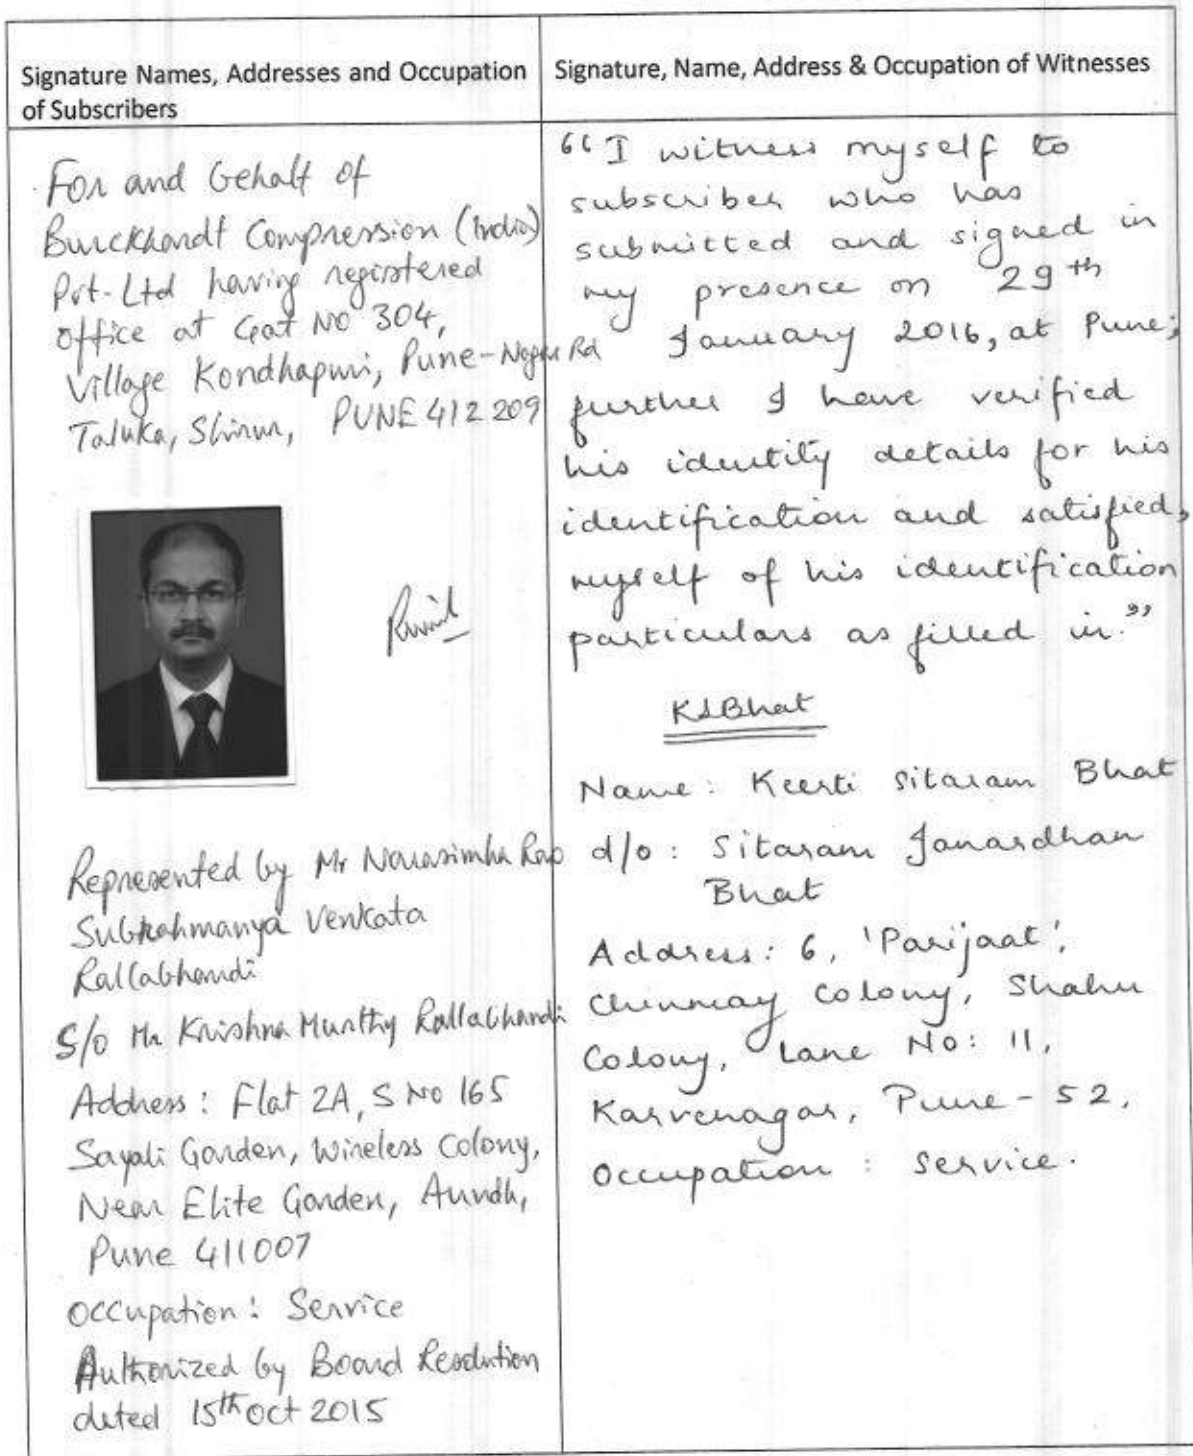 Signature Names, Addresses and Occupation
of Subscribers
For and behalf of
Burckhardt Compression (India)
Pvt. Ltd having registered
office at Gat No 304,
Village Kondhapuri, Pune-Nagar Rd
Taluka, Shirur, PUNE 412 209
Represented by Mr Narasimha Rao
Subrahmanya Venkata
Rallabhandi
S/o Mr Krishna Murthy Rallabhandi
Address: Flat 2A, S No 165
Sayali Garden, Wireless Colony,
Near Elite Garden, Aundh,
Pune 411007
Occupation: Service
Authorized by Board Resolution
dated 15th Oct 2015
Signature, Name, Address & Occupation of Witnesses
"I witness myself to
subscriber who has
submitted and signed in
my presence on 29th
January 2016, at Pune;
further I have verified
his identity details for his
identification and satisfied,
myself of his identification
particulars as filled in."
KSBhat
Name: Keerti Sitaram Bhat
d/o: Sitaram Janardhan
Bhat
Address: 6, 'Parijaat',
Chinmay Colony, Shahu
Colony, Lane No: 11,
Karvenagar, Pune-52,
Occupation: Service.